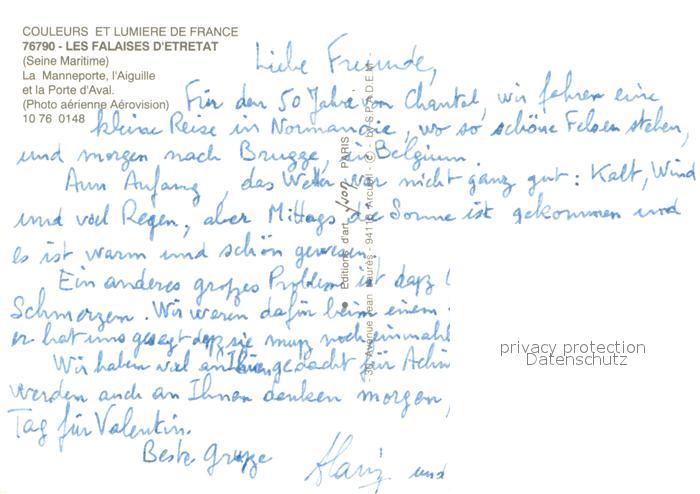 COULEURS ET LUMIERE DE FRANCE
76790 - LES FALAISES D'ETRETAT
(Seine Maritime)
La Manneporte, l'Aiguille
et la Porte d'Aval.
(Photo aérienne Aérovision)
10 76 0148
Liebe Freunde,
Für den 50 Jahre von Chantal, wir fahren eine
kleine Reise in Normandie, wo so schöne Felsen stehen,
und morgen nach Brugge, in Belgium.
Am Anfang, das Wetter war nicht ganz gut: Kalt, Wind
und viel Regen, aber Mittags die Sonne ist gekommen und
es ist warm und schön gewesen.
Ein anderes großes Problem ist daß
Schmerzen. Wir waren dafür beim einem
er hat uns gesagt daß sie muß noch einmal
Wir haben viel an Ihnen gedacht für
werden auch an Ihnen denken morgen,
Tag für Valentin.
Beste Grüße
und
Editions d'art Yvon PARIS
- 30, Avenue Jean Jaurès - 94110 Arcueil - (c) - by S.P.A.D.E.M -
privacy protection
Datenschutz